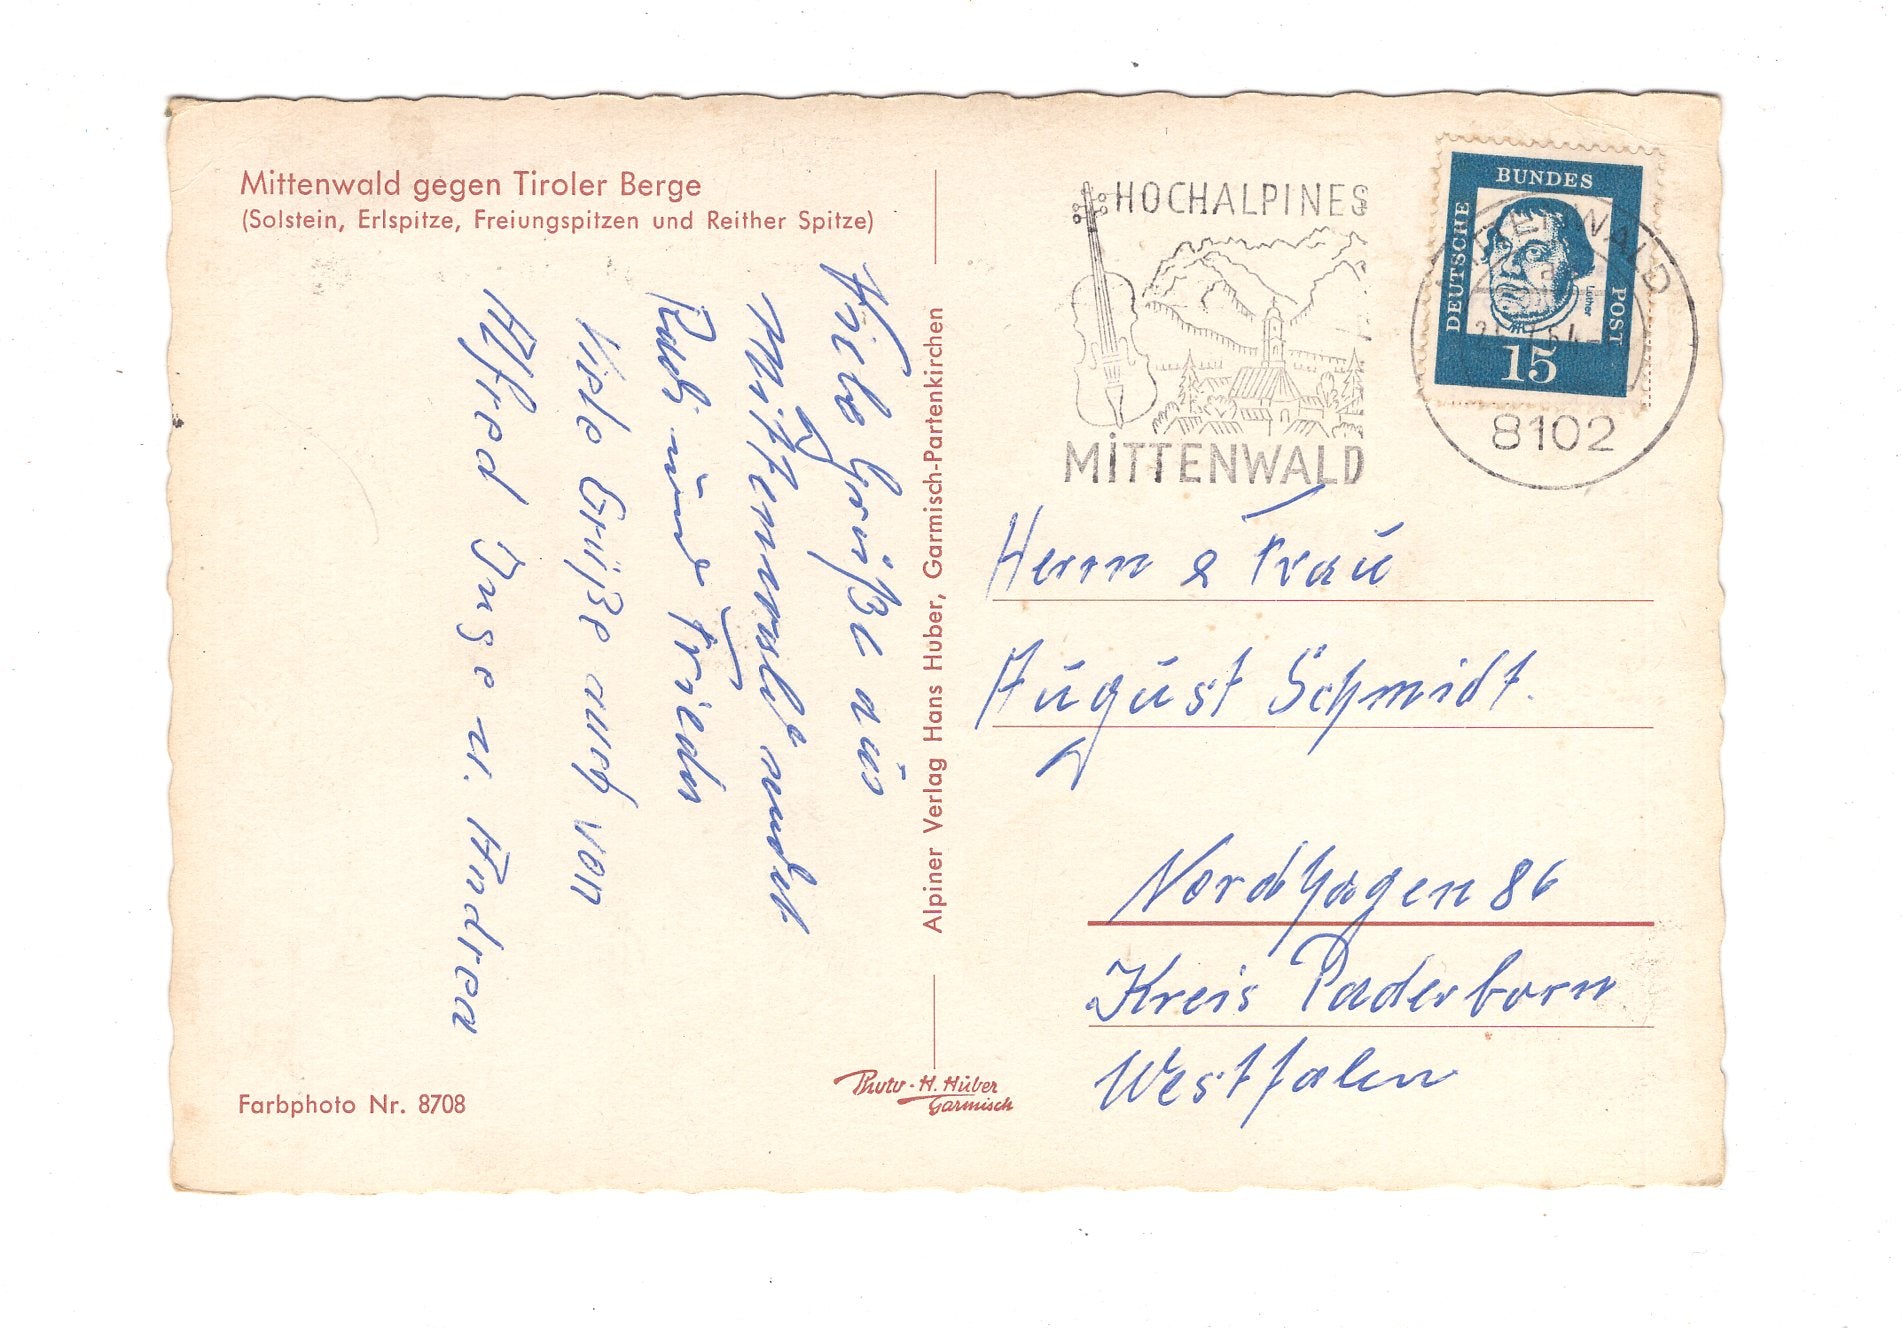 Mittenwald gegen Tiroler Berge
(Solstein, Erlspitze, Freiungspitzen und Reither Spitze)
Viele Grüße aus
Mittenwald sendet
Rudi und Frieda
Viele Grüße auch von
Alfred Inge u. Andrea
Farbphoto Nr. 8708
Alpiner Verlag Hans Huber, Garmisch-Partenkirchen
Photo-H. Huber
Garmisch
HOCHALPINES
MITTENWALD
DEUTSCHE
BUNDES
POST
Luther
15
8102
Herrn & Frau
August Schmidt.
Nordhagen 86
Kreis Paderborn
Westfalen